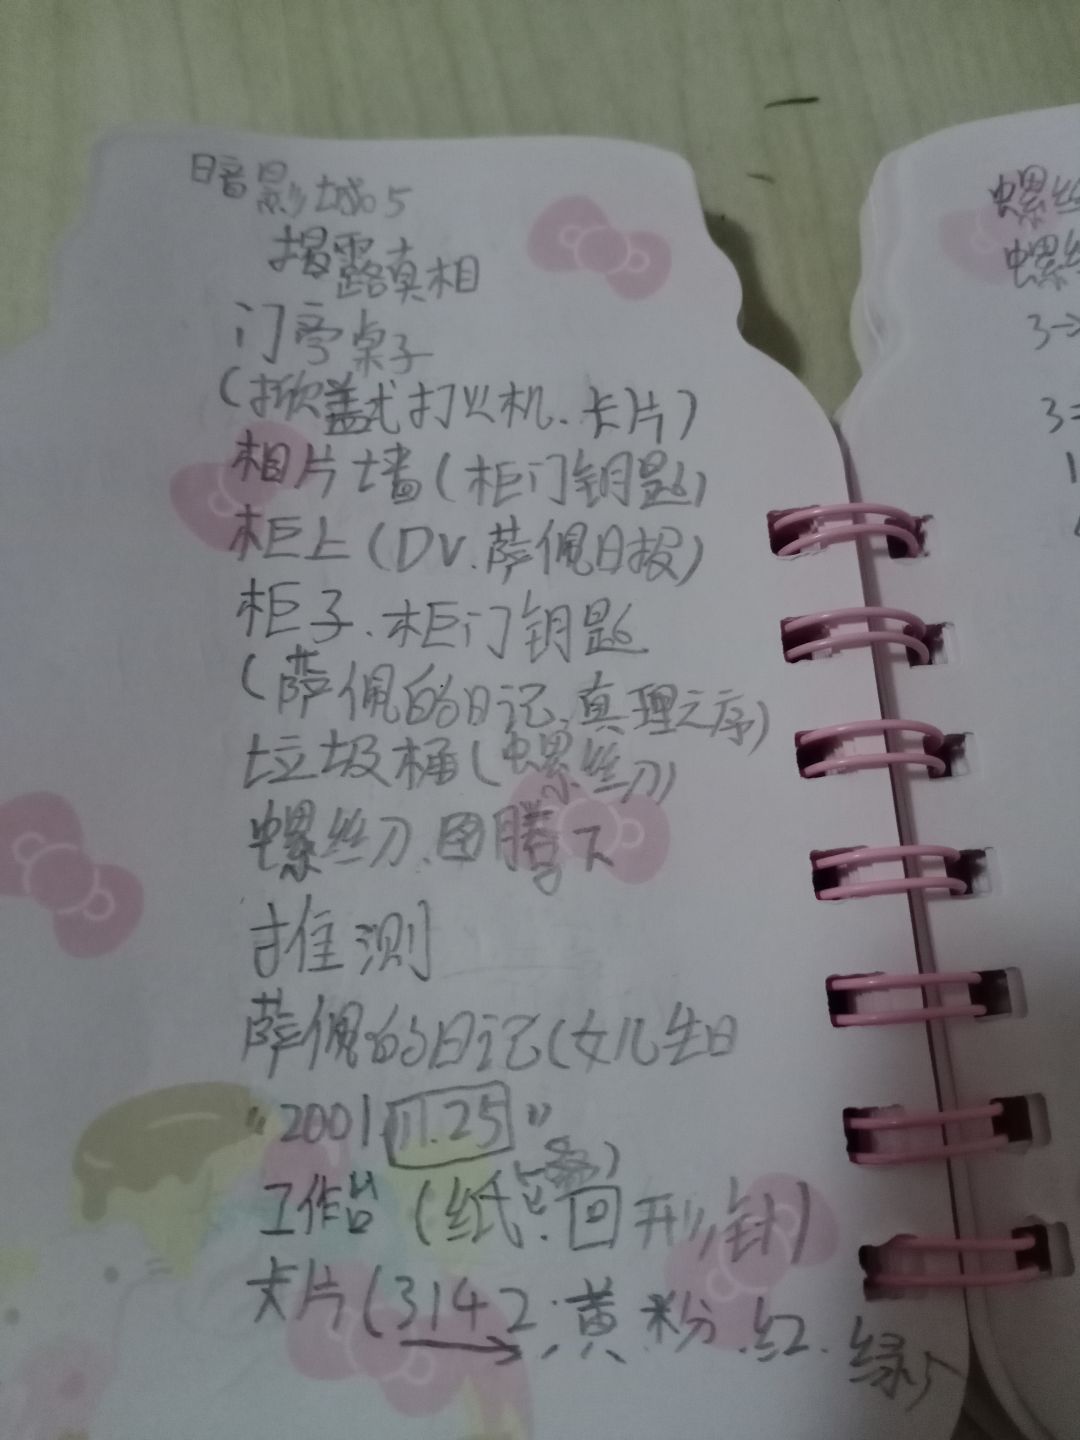 暗影城5
揭露真相
门旁桌子
(掀盖式打火机、卡片)
相片墙(柜门钥匙)
柜上(DV、萨佩日报)
柜子、柜门钥匙
(萨佩的日记、真理之序)
垃圾桶(螺丝刀)
螺丝刀、图腾下
推测
萨佩的日记(女儿生日
"2001 11.25"
工作台(纸一叠、回形针)
卡片(3142:黄、粉、红、绿)
螺丝
螺丝
3→
3=
1